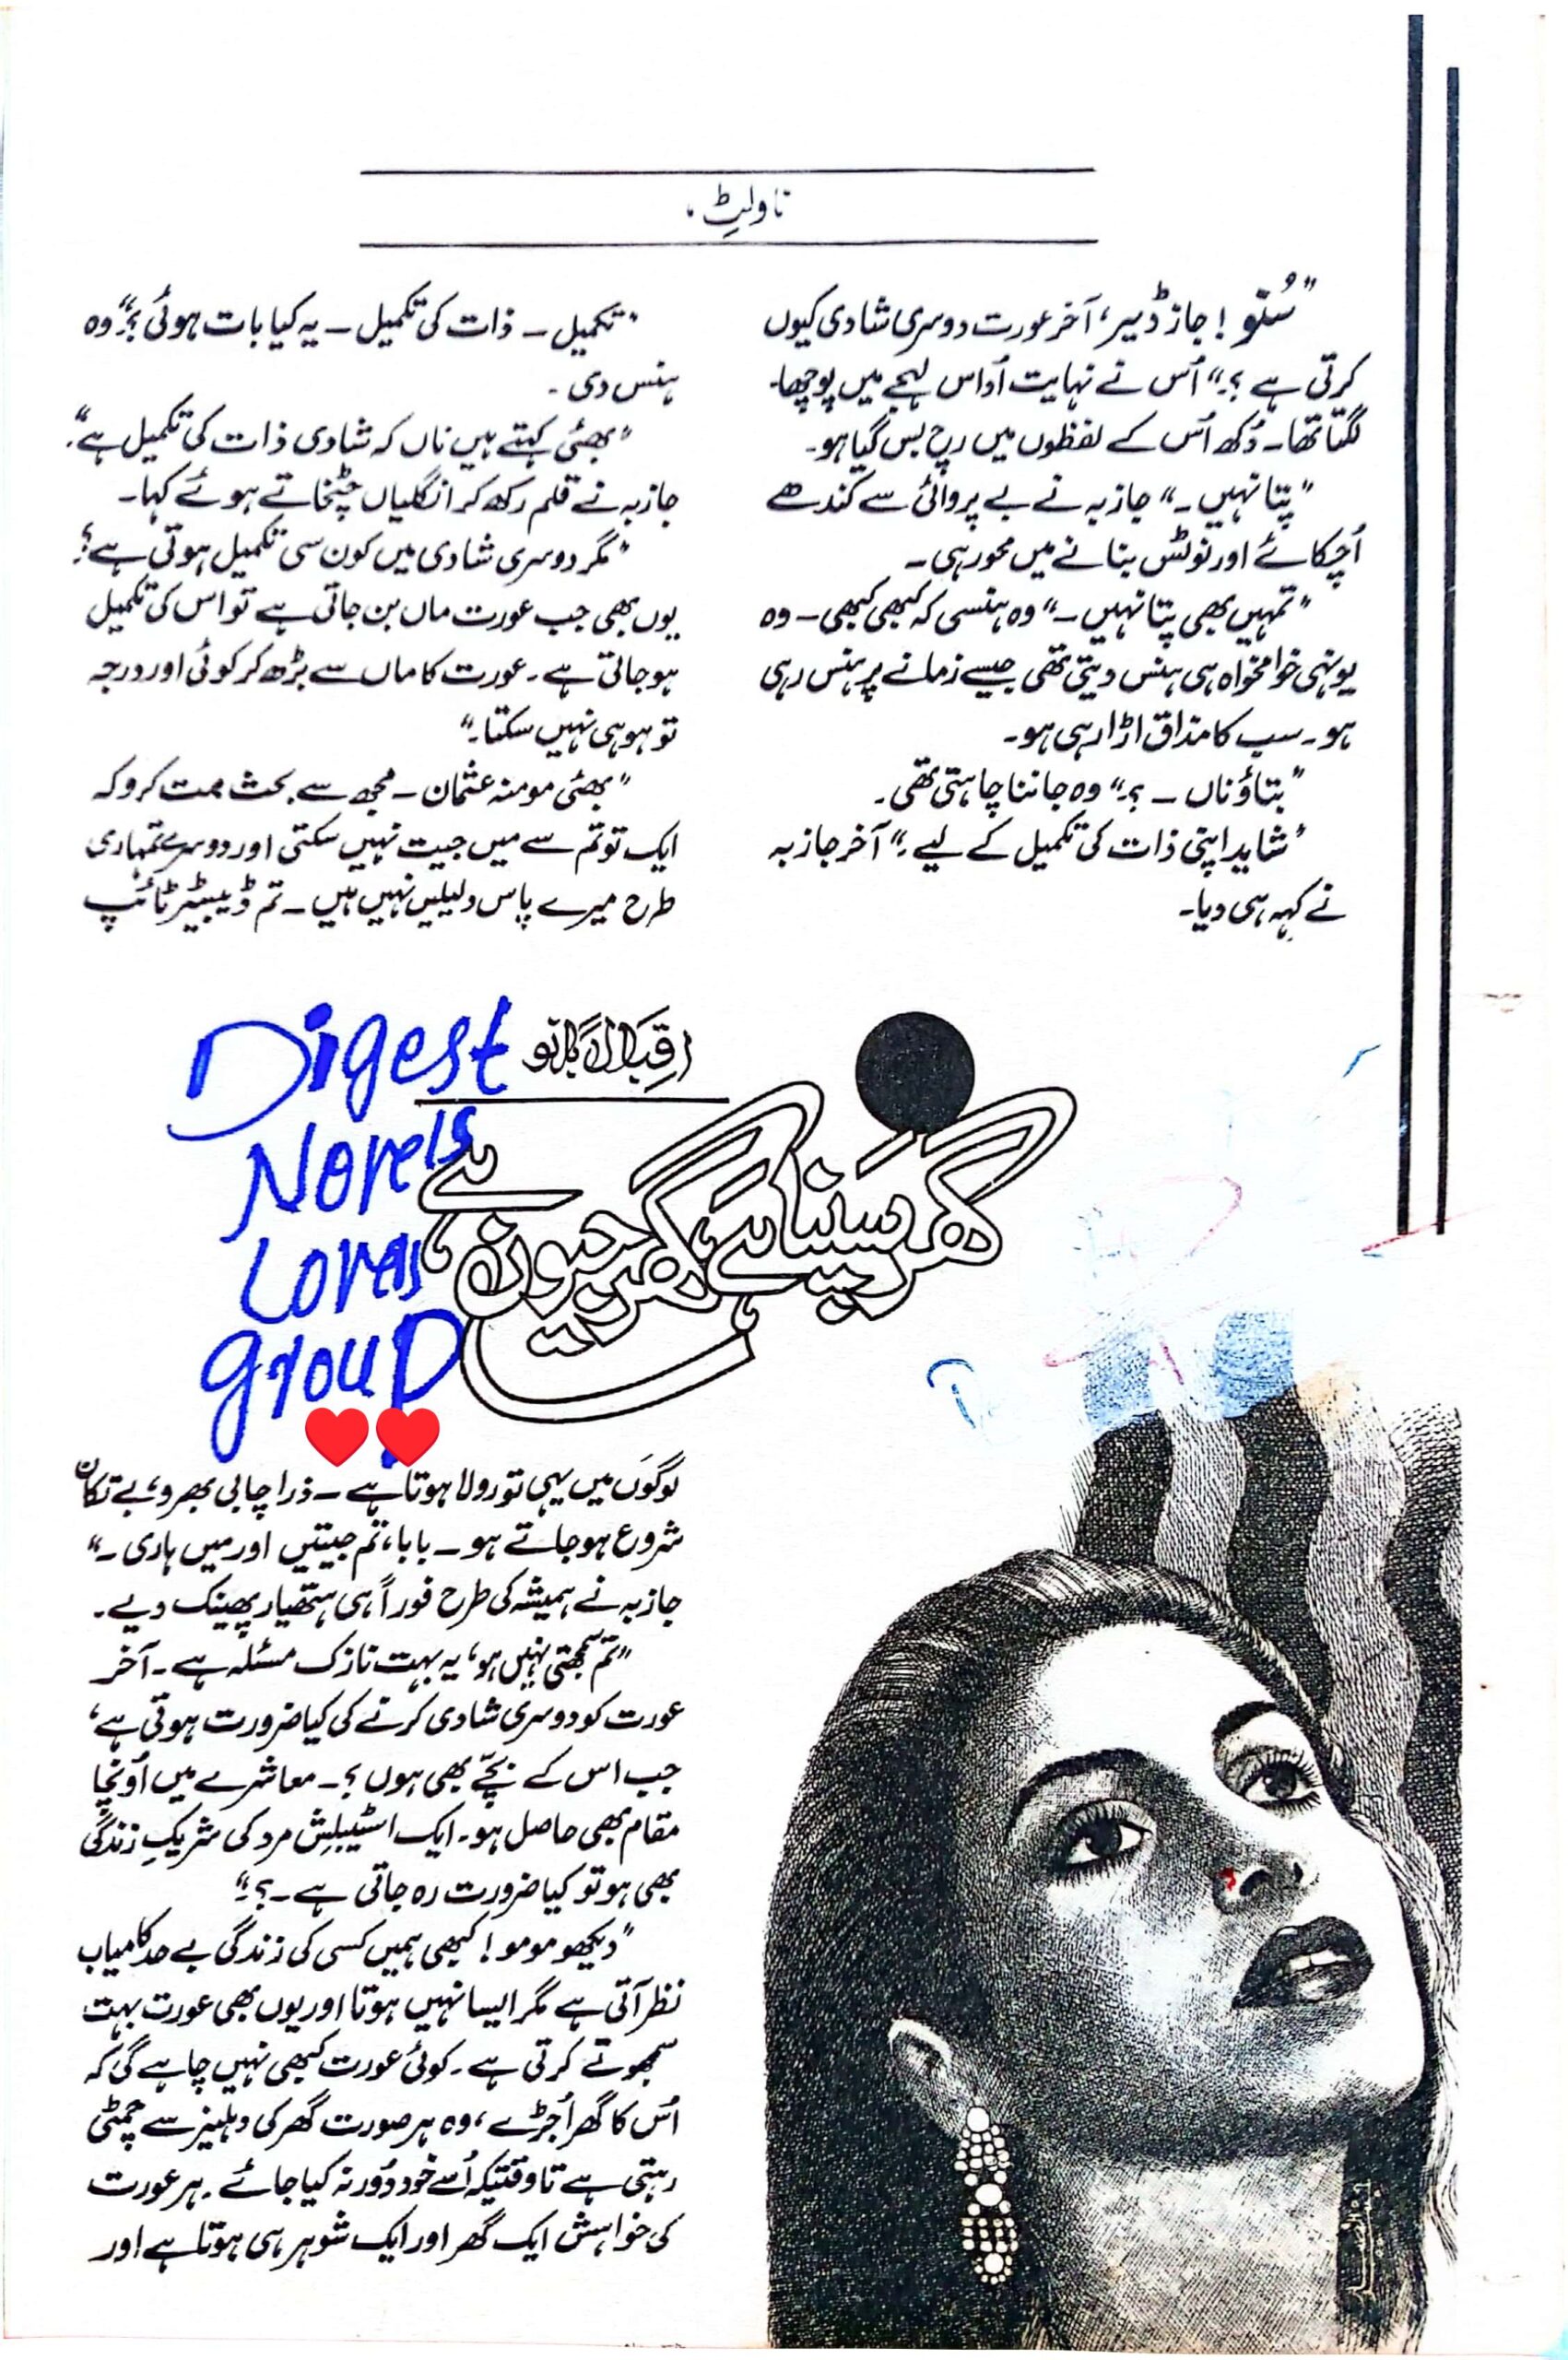 ناولٹ
"سُنو! جاز ڈیئر، آخر عورت دوسری شادی کیوں
کرتی ہے؟" اُس نے نہایت اُداس لہجے میں پوچھا۔
لگتا تھا۔ دُکھ اُس کے لفظوں میں رچ بس گیا ہو۔
"پتا نہیں۔" جازبہ نے بے پروائی سے کندھے
اُچکائے اور نوٹس بنانے میں محو رہی۔
"تمہیں بھی پتا نہیں۔" وہ ہنسی کہ کبھی کبھی۔ وہ
یونہی خوامخواہ ہی ہنس دیتی تھی جیسے زمانے پر ہنس رہی
ہو۔ سب کا مذاق اڑا رہی ہو۔
"بتاؤ ناں۔؟" وہ جاننا چاہتی تھی۔
"شاید اپنی ذات کی تکمیل کے لیے۔" آخر جازبہ
نے کہہ ہی دیا۔
"تکمیل۔ ذات کی تکمیل۔ یہ کیا بات ہوئی؟" وہ
ہنس دی۔
"بھئی کہتے ہیں ناں کہ شادی ذات کی تکمیل ہے۔"
جازبہ نے قلم رکھ کر انگلیاں چٹخاتے ہوئے کہا۔
"مگر دوسری شادی میں کون سی تکمیل ہوتی ہے؟
یوں بھی جب عورت ماں بن جاتی ہے تو اس کی تکمیل
ہو جاتی ہے۔ عورت کا ماں سے بڑھ کر کوئی اور درجہ
تو ہو ہی نہیں سکتا۔"
"بھئی مومنہ عثمان۔ مجھ سے بحث مت کرو کہ
ایک تو تم سے میں جیت نہیں سکتی اور دوسرے تمہاری
طرح میرے پاس دلیلیں نہیں ہیں۔ تم ڈیبیٹر ٹائپ
اقبال بانو
گھر سپنا ہے گھر جیون ہے
Digest
Novels
Lovers
group
لوگوں میں یہی تو رولا ہوتا ہے۔ ذرا چابی بھرو، بے تکان
شروع ہو جاتے ہو۔ بابا، تم جیتیں اور میں ہاری۔"
جازبہ نے ہمیشہ کی طرح فوراً ہی ہتھیار پھینک دیے۔
"تم سمجھتی نہیں ہو، یہ بہت نازک مسئلہ ہے۔ آخر
عورت کو دوسری شادی کرنے کی کیا ضرورت ہوتی ہے،
جب اس کے بچّے بھی ہوں؟۔ معاشرے میں اُونچا
مقام بھی حاصل ہو۔ ایک اسٹیبلش مرد کی شریکِ زندگی
بھی ہو تو کیا ضرورت رہ جاتی ہے۔؟"
"دیکھو مومو! کبھی ہمیں کسی کی زندگی بے حد کامیاب
نظر آتی ہے مگر ایسا نہیں ہوتا اور یوں بھی عورت بہت
سمجھوتے کرتی ہے۔ کوئی عورت کبھی نہیں چاہے گی کہ
اُس کا گھر اُجڑے، وہ ہر صورت گھر کی دہلیز سے چمٹی
رہتی ہے تا وقتیکہ اُسے خود دُور نہ کیا جائے۔ ہر عورت
کی خواہش ایک گھر اور ایک شوہر ہی ہوتا ہے اور